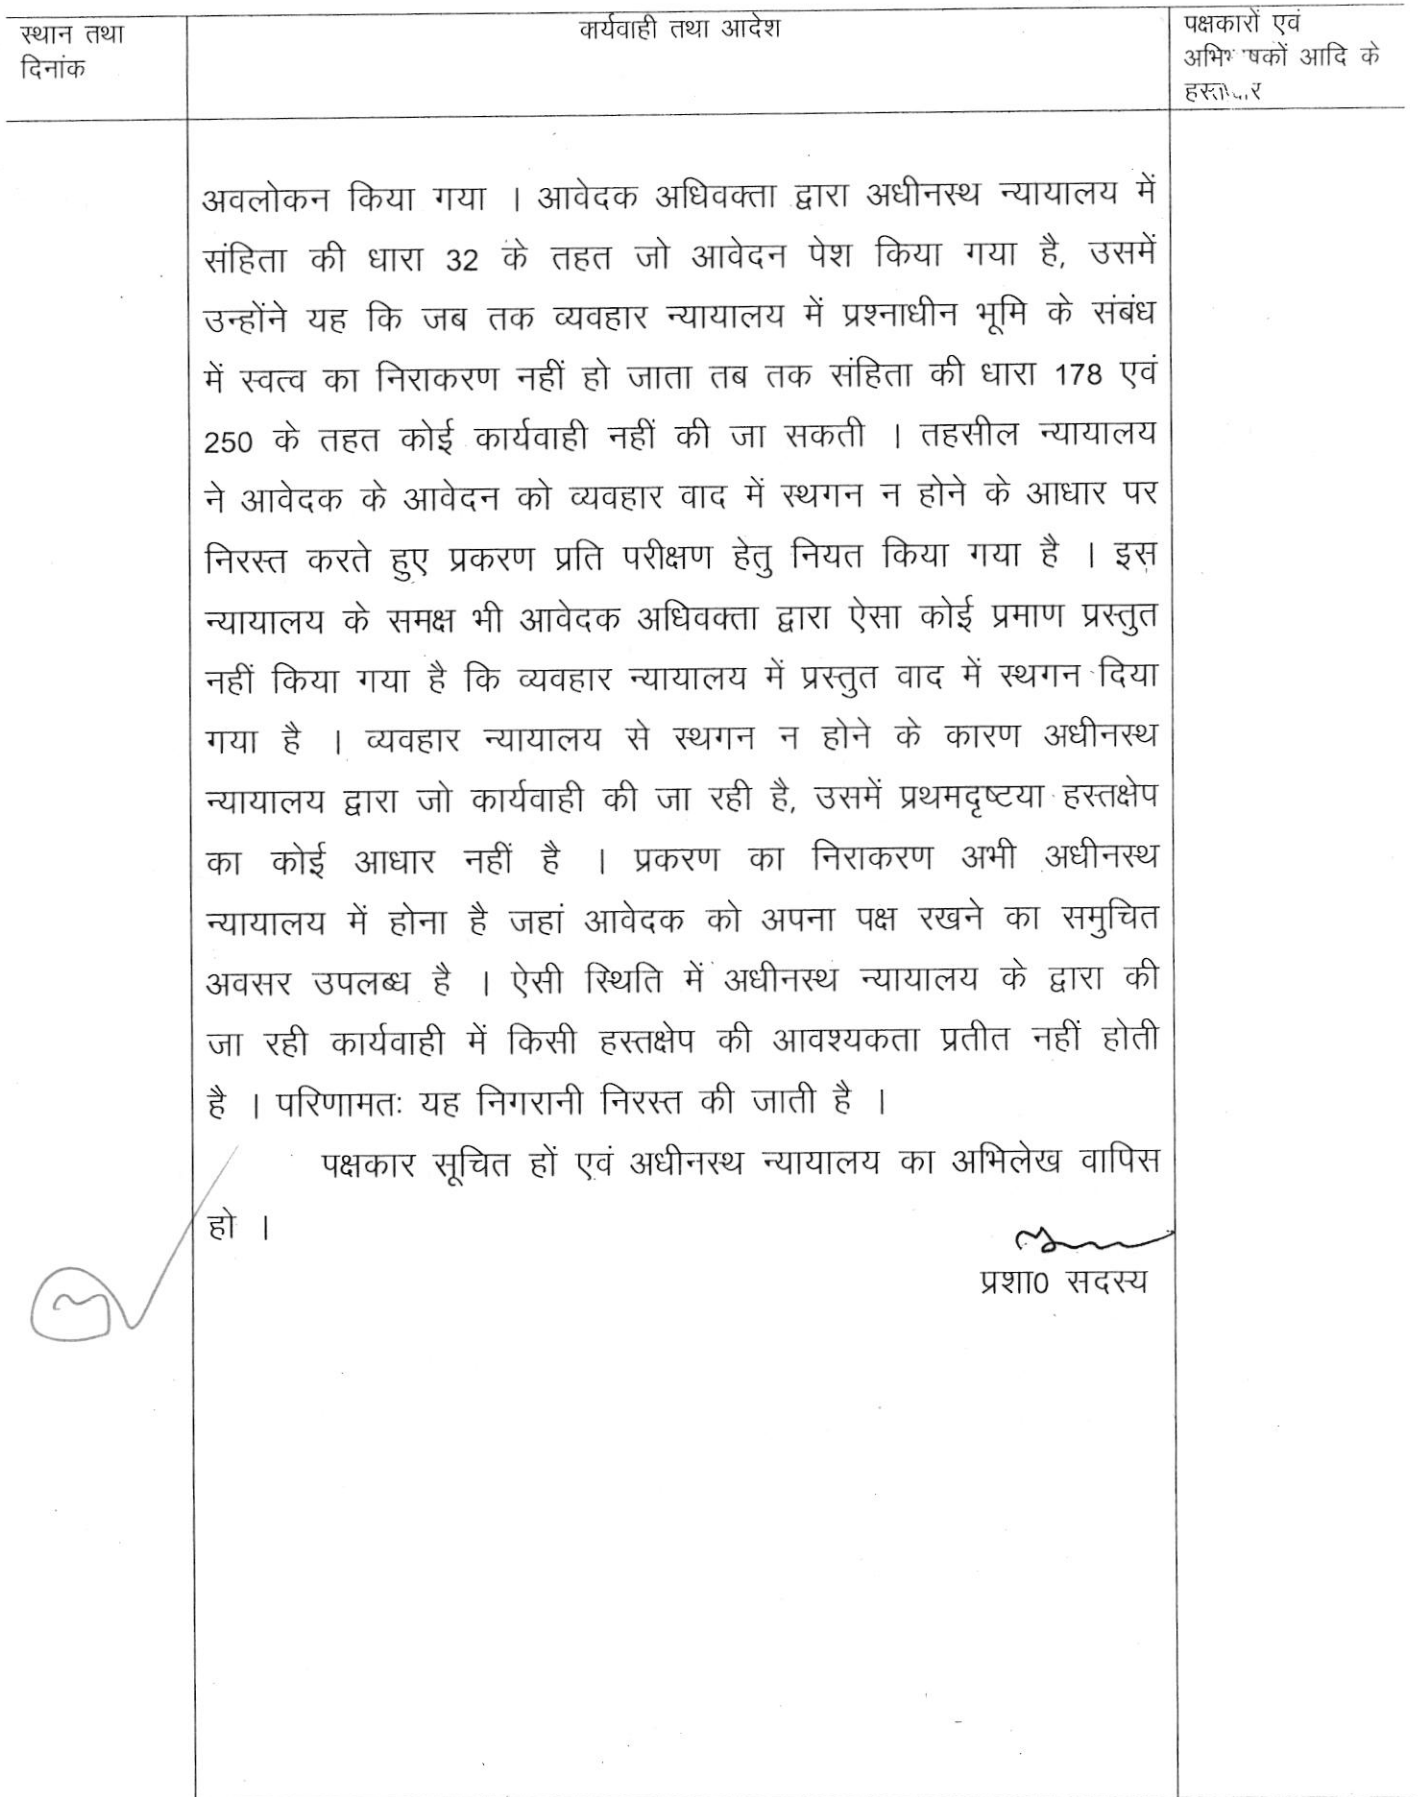 स्थान तथा
दिनांक
कार्यवाही तथा आदेश
पक्षकारों एवं
आदि के
अवलोकन किया गया । आवेदक अधिवक्ता द्वारा अधीनस्थ न्यायालय में
संहिता की धारा 32 के तहत जो आवेदन पेश किया गया है, उसमें
उन्होंने यह कि जब तक व्यवहार न्यायालय में प्रश्नाधीन भूमि के संबंध
में स्वत्व का निराकरण नहीं हो जाता तब तक संहिता की धारा 178 एवं
250 के तहत कोई कार्यवाही नहीं की जा सकती । तहसील न्यायालय
ने आवेदक के आवेदन को व्यवहार वाद में स्थगन न होने के आधार पर
निरस्त करते हुए प्रकरण प्रति परीक्षण हेतु नियत किया गया है । इस
न्यायालय के समक्ष भी आवेदक अधिवक्ता द्वारा ऐसा कोई प्रमाण प्रस्तुत
नहीं किया गया है कि व्यवहार न्यायालय में प्रस्तुत वाद में स्थगन दिया
गया है । व्यवहार न्यायालय से स्थगन न होने के कारण अधीनस्थ
न्यायालय द्वारा जो कार्यवाही की जा रही है, उसमें प्रथमदृष्टया हस्तक्षेप
का कोई आधार नहीं है । प्रकरण का निराकरण अभी अधीनस्थ
न्यायालय में होना है जहां आवेदक को अपना पक्ष रखने का समुचित
अवसर उपलब्ध है । ऐसी स्थिति में अधीनस्थ न्यायालय के द्वारा की
जा रही कार्यवाही में किसी हस्तक्षेप की आवश्यकता प्रतीत नहीं होती
है । परिणामतः यह निगरानी निरस्त की जाती है ।
पक्षकार सूचित हों एवं अधीनस्थ न्यायालय का अभिलेख वापिस
हो ।
प्रशा0 सदस्य